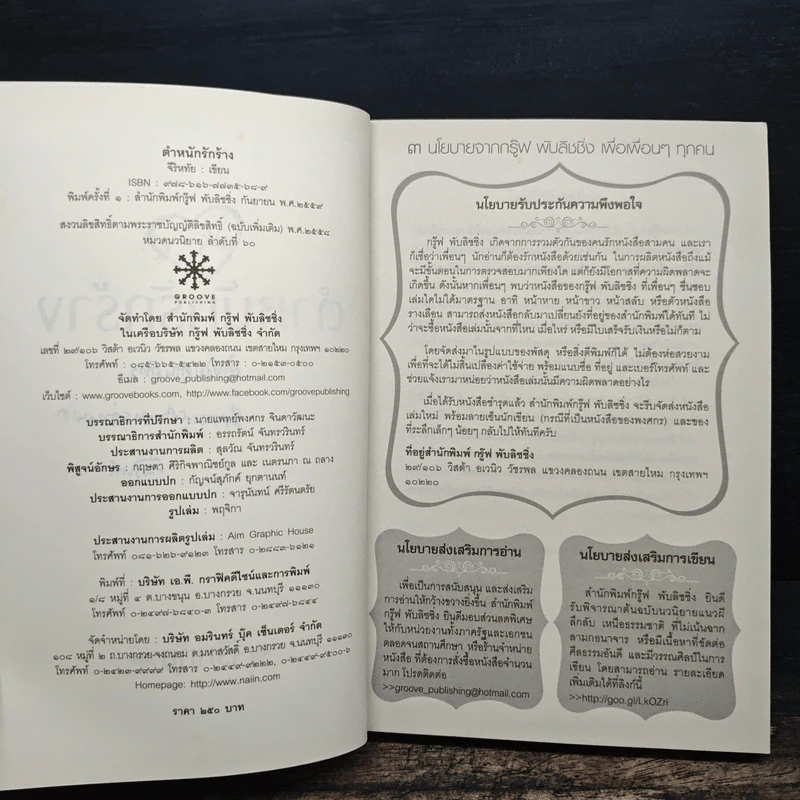 ตำหนักรักร้าง
จิรัหทัย : เขียน
ISBN : ๙๗๘-๖๑๖-๗๗๓๕-๖๘-๙
พิมพ์ครั้งที่ ๑ : สำนักพิมพ์กรู๊ฟ พับลิชชิ่ง กันยายน พ.ศ.๒๕๕๙
สงวนลิขสิทธิ์ตามพระราชบัญญัติลิขสิทธิ์ (ฉบับเพิ่มเติม) พ.ศ.๒๕๕๘
หมวดนวนิยาย ลำดับที่ ๖๐
GROOVE
PUBLISHING
จัดทำโดย สำนักพิมพ์ กรู๊ฟ พับลิชชิ่ง
ในเครือบริษัท กรู๊ฟ พับลิชชิ่ง จำกัด
เลขที่ ๒๙/๑๐๖ วิสต้า อเวนิว วัชรพล แขวงคลองถนน เขตสายไหม กรุงเทพฯ ๑๐๒๒๐
โทรศัพท์ : ๐๘๕-๖๖๕-๕๔๒๒ โทรสาร : ๐-๒๑๕๓-๐๕๐๐
อีเมล : groove_publishing@hotmail.com
เว็บไซต์ : www.groovebooks.com, http://www.facebook.com/groovepublishing
บรรณาธิการที่ปรึกษา : นายแพทย์พงศกร จินดาวัฒนะ
บรรณาธิการสำนักพิมพ์ : อรรถรัตน์ จันทรวรินทร์
ประสานงานการผลิต : สุลวัณ จันทรวรินทร์
พิสูจน์อักษร : กฤษดา ศิริกิจพาณิชย์กูล และ เนตรนภา ณ ถลาง
ออกแบบปก : กัญจน์สุภัคค์ ยุกตานนท์
ประสานงานการออกแบบปก : จารุนันทน์ ศรีรัตนตรัย
รูปเล่ม : พฤจิกา
ประสานงานการผลิตรูปเล่ม : Aim Graphic House
โทรศัพท์ ๐๘๑-๖๒๖-๙๑๒๓ โทรสาร ๐-๒๘๘๓-๖๑๒๑
พิมพ์ที่ : บริษัท เอ.พี. กราฟิคดีไซน์และการพิมพ์
๑/๘ หมู่ที่ ๔ ต.บางขนุน อ.บางกรวย จ.นนทบุรี ๑๑๑๓๐
โทรศัพท์ ๐-๒๔๙๗-๖๘๔๐-๓ โทรสาร ๐-๒๔๙๗-๖๘๕๔
จัดจำหน่ายโดย : บริษัท อมรินทร์ บุ๊ค เซ็นเตอร์ จำกัด
๑๐๘ หมู่ที่ ๒ ถ.บางกรวย-จงถนอม ต.มหาสวัสดิ์ อ.บางกรวย จ.นนทบุรี ๑๑๑๓๐
โทรศัพท์ ๐-๒๔๒๓-๙๙๙๙ โทรสาร ๐-๒๔๔๙-๙๒๒๒, ๐-๒๔๔๙-๙๕๐๐-๖
Homepage: http://www.naiin.com
ราคา ๒๕๐ บาท
๓ นโยบายจากกรู๊ฟ พับลิชชิ่ง เพื่อเพื่อนๆ ทุกคน
นโยบายรับประกันความพึงพอใจ
กรู๊ฟ พับลิชชิ่ง เกิดจากการรวมตัวกันของคนรักหนังสือสามคน และเรา
ก็เชื่อว่าเพื่อนๆ นักอ่านก็ต้องรักหนังสือด้วยเช่นกัน ในการผลิตหนังสือถึงแม้
จะมีขั้นตอนในการตรวจสอบมากเพียงใด แต่ก็ยังมีโอกาสที่ความผิดพลาดจะ
เกิดขึ้น ดังนั้นหากเพื่อนๆ พบว่าหนังสือของกรู๊ฟ พับลิชชิ่ง ที่เพื่อนๆ ชื่นชอบ
เล่มใดไม่ได้มาตรฐาน อาทิ หน้าหาย หน้าขาว หน้าสลับ หรือตัวหนังสือ
รางเลือน สามารถส่งหนังสือกลับมาเปลี่ยนยังที่อยู่ของสำนักพิมพ์ได้ทันที ไม่
ว่าจะซื้อหนังสือเล่มนั้นจากที่ไหน เมื่อไหร่ หรือมีใบเสร็จรับเงินหรือไม่ก็ตาม
โดยจัดส่งมาในรูปแบบของพัสดุ หรือสิ่งตีพิมพ์ก็ได้ ไม่ต้องห่อสวยงาม
เพื่อที่จะได้ไม่สิ้นเปลืองค่าใช้จ่าย พร้อมแนบชื่อ ที่อยู่ และเบอร์โทรศัพท์ และ
ช่วยแจ้งเรามาหน่อยว่าหนังสือเล่มนั้นมีความผิดพลาดอย่างไร
เมื่อได้รับหนังสือชำรุดแล้ว สำนักพิมพ์กรู๊ฟ พับลิชชิ่ง จะรีบจัดส่งหนังสือ
เล่มใหม่ พร้อมลายเซ็นนักเขียน (กรณีที่เป็นหนังสือของพงศกร) และของ
ที่ระลึกเล็กๆ น้อยๆ กลับไปให้ทันทีครับ
ที่อยู่สำนักพิมพ์ กรู๊ฟ พับลิชชิ่ง
๒๙/๑๐๖ วิสต้า อเวนิว วัชรพล แขวงคลองถนน เขตสายไหม กรุงเทพฯ
๑๐๒๒๐
นโยบายส่งเสริมการอ่าน
เพื่อเป็นการสนับสนุน และส่งเสริม
การอ่านให้กว้างขวางยิ่งขึ้น สำนักพิมพ์
กรู๊ฟ พับลิชชิ่ง ยินดีมอบส่วนลดพิเศษ
ให้กับหน่วยงานทั้งภาครัฐและเอกชน
ตลอดจนสถานศึกษา หรือร้านจำหน่าย
หนังสือ ที่ต้องการสั่งซื้อหนังสือจำนวน
มาก โปรดติดต่อ
>>groove_publishing@hotmail.com
นโยบายส่งเสริมการเขียน
สำนักพิมพ์กรู๊ฟ พับลิชชิ่ง ยินดี
รับพิจารณาต้นฉบับนวนิยายแนวผี
ลึกลับ เหนือธรรมชาติ ที่ไม่เน้นฉาก
ลามกอนาจาร หรือมีเนื้อหาที่ขัดต่อ
ศีลธรรมอันดี และมีวรรณศิลป์ในการ
เขียน โดยสามารถอ่าน รายละเอียด
เพิ่มเติมได้ที่ลิงก์นี้
>>http://goo.gl/LkOZri